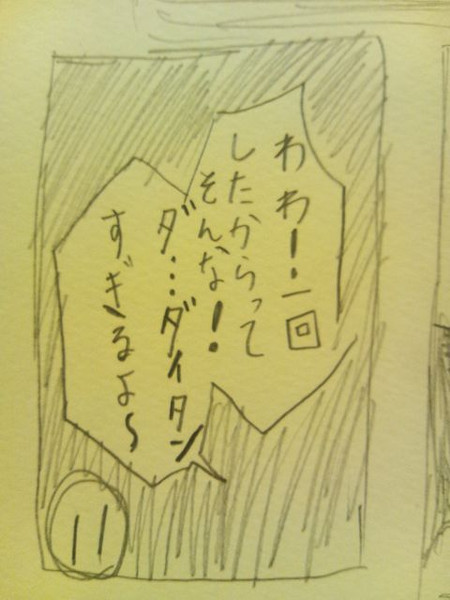 わわー!一回
したからって
そんな!
ダ…ダイタン
すぎるよ〜